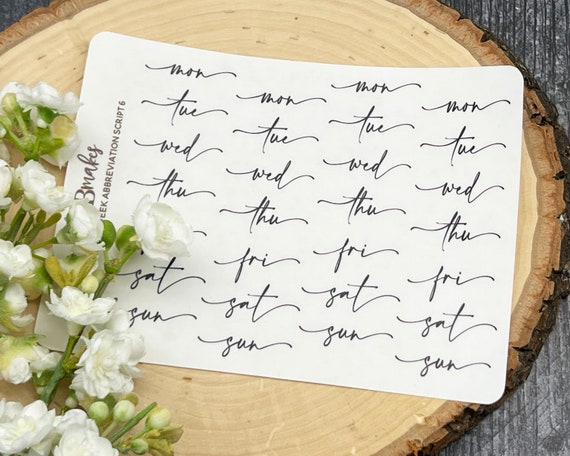 Bmakes
EEK ABBREVIATION SCRIPT 6
mon mon mon mon
tue tue tue tue
wed wed wed wed
thu thu thu thu
fri fri fri
sat sat sat sat
sun sun sun sun